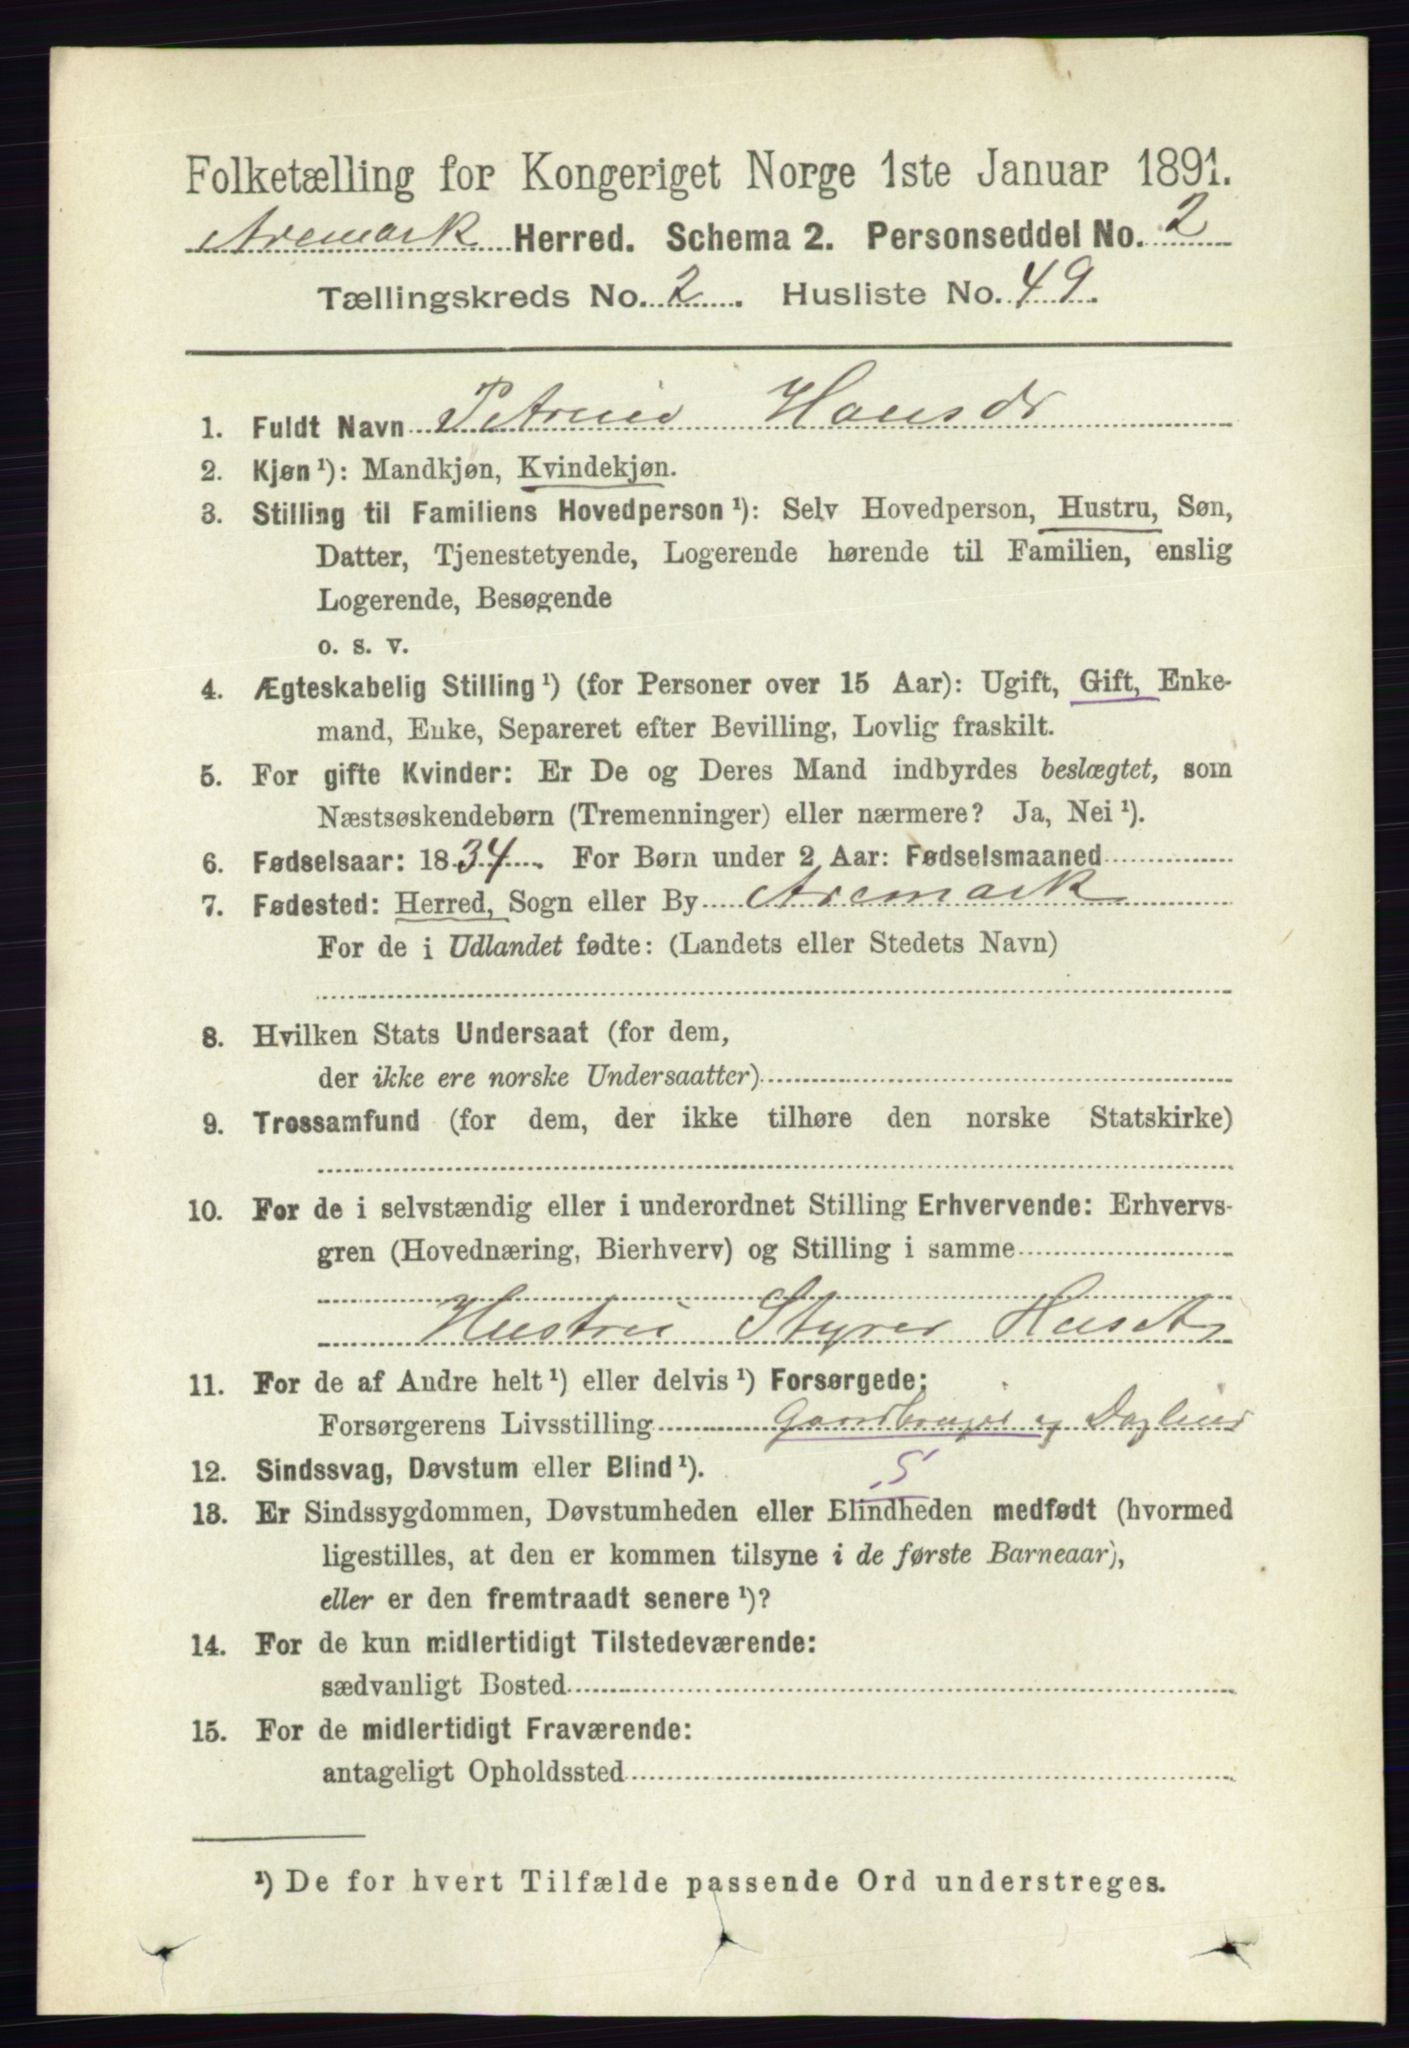 Folketælling for Kongeriget Norge 1ste Januar 1891.
Aremark Herred. Schema 2. Personseddel No. 2
Tællingskreds No. 2. Husliste No. 49.
1. Fuldt Navn Petrine Hansdr
2. Kjøn¹): Mandkjøn, Kvindekjøn.
3. Stilling til Familiens Hovedperson¹): Selv Hovedperson, Hustru, Søn,
Datter, Tjenestetyende, Logerende hørende til Familien, enslig
Logerende, Besøgende
o. s. v.
4. Ægteskabelig Stilling¹) (for Personer over 15 Aar): Ugift, Gift, Enke-
mand, Enke, Separeret efter Bevilling, Lovlig fraskilt.
5. For gifte Kvinder: Er De og Deres Mand indbyrdes beslægtet, som
Næstsøskendebørn (Tremenninger) eller nærmere? Ja, Nei¹).
6. Fødselsaar: 1834. For Børn under 2 Aar: Fødselsmaaned
7. Fødested: Herred, Sogn eller By Aremark
For de i Udlandet fødte: (Landets eller Stedets Navn)
8. Hvilken Stats Undersaat (for dem,
der ikke ere norske Undersaatter)
9. Trossamfund (for dem, der ikke tilhøre den norske Statskirke)
10. For de i selvstændig eller i underordnet Stilling Erhvervende: Erhvervs-
gren (Hovednæring, Bierhverv) og Stilling i samme
Hustru Styrer Huset
11. For de af Andre helt¹) eller delvis¹) Forsørgede:
Forsørgerens Livsstilling Gaardbruger og Daglønr
12. Sindssvag, Døvstum eller Blind¹). 5
13. Er Sindssygdommen, Døvstumheden eller Blindheden medfødt (hvormed
ligestilles, at den er kommen tilsyne i de første Barneaar),
eller er den fremtraadt senere¹)?
14. For de kun midlertidigt Tilstedeværende:
sædvanligt Bosted
15. For de midlertidigt Fraværende:
antageligt Opholdssted
¹) De for hvert Tilfælde passende Ord understreges.